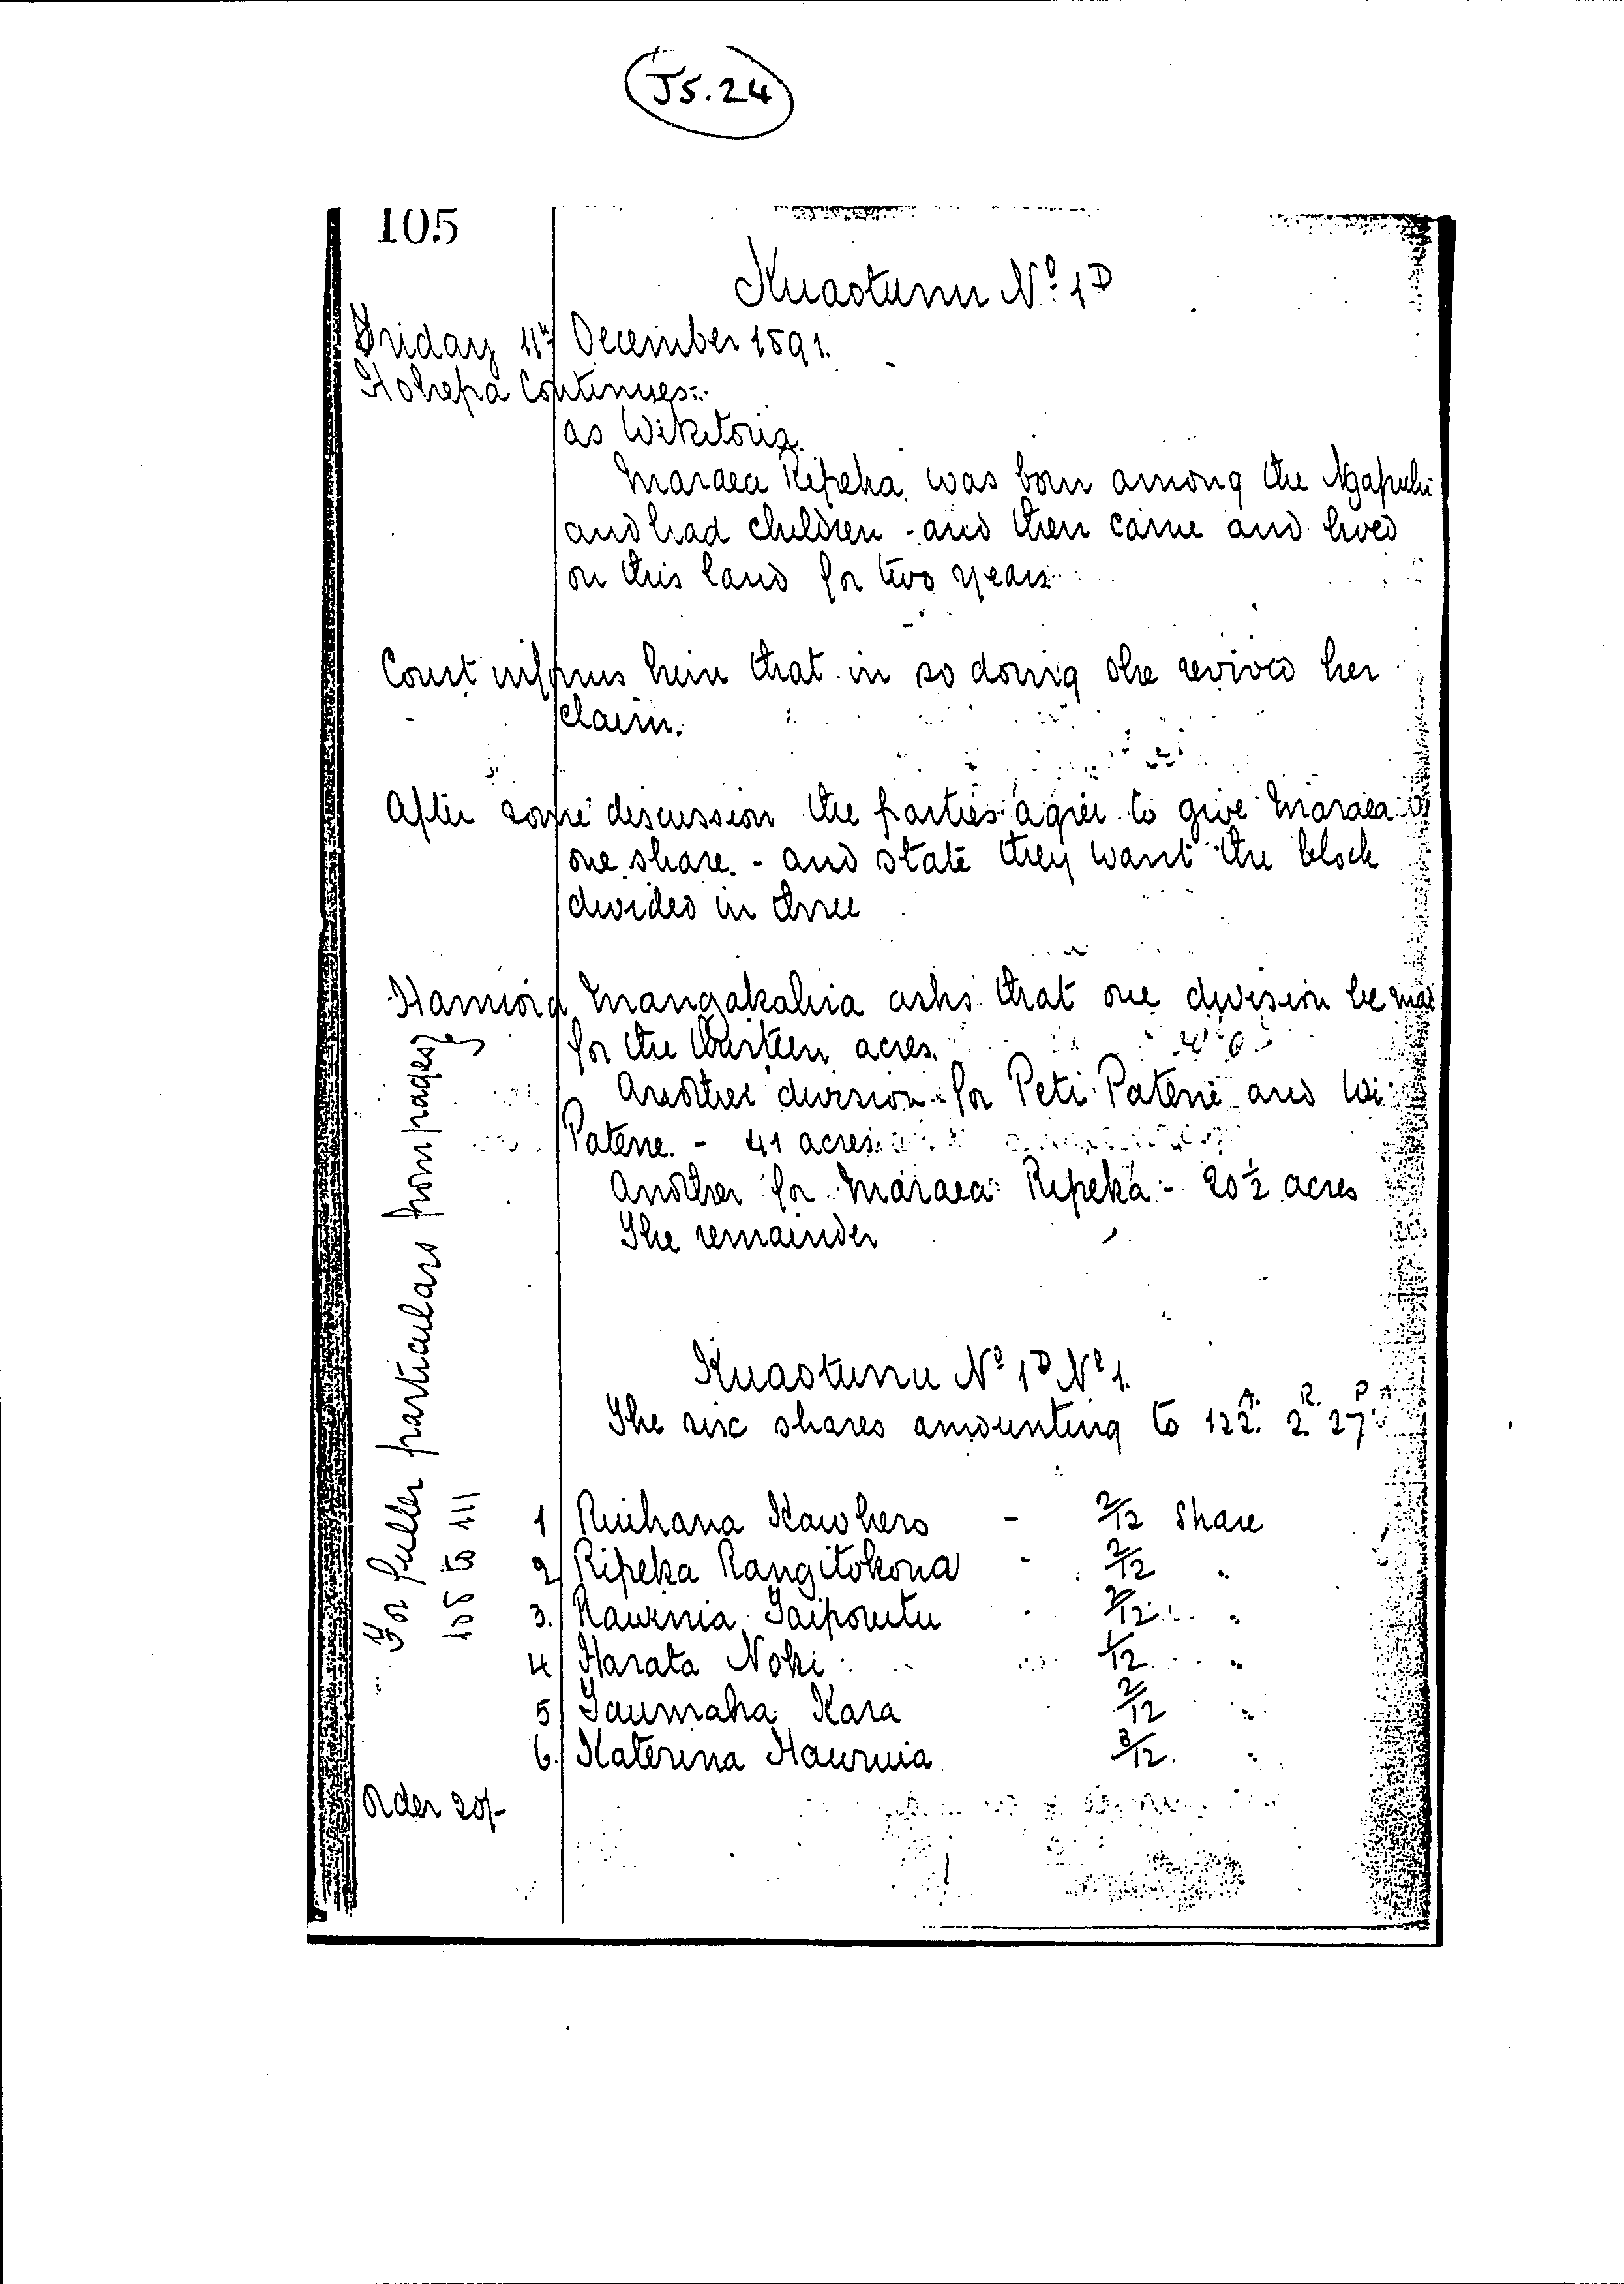 J5.24
105
Kuaotunu No. 1D
Friday 11th December 1891.
Hohepa Continues:-
as Wikitoria.
Maraea Ripeka. was born among the Ngapuhi
and had children - and then came and lived
on this land for two years
Court informs him that in so doing she revived her
claim.
After some discussion the parties agree to give Maraea
one share. - and state they want the block
divided in three
Hamiora Mangakahia asks that one division be
for the thirteen acres.
Another division for Peti Patene and Wi
Patene. - 41 acres
Another for Maraea Ripeka - 20½ acres
The remainder
Kuaotunu No 1D No 1.
A. R. P
The six shares amounting to 122. 2. 27
1 Ruihana Kawhero - 2/12 Share
2. Ripeka Rangitokona - 2/12 "
3. Haurnia Taipoutu 2/12 "
4 Harata Noki 1/12 "
5 Taumaha Kara 2/12 "
6. Katerina Hauruia 3/12. "
Order 20/-
For fuller particulars from pages
108 to 111